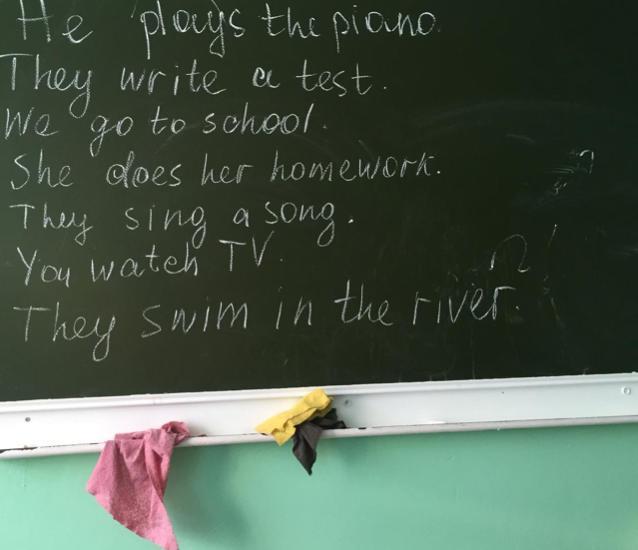 He plays the piano.
They write a test.
We go to school.
She does her homework.
They sing a song.
You watch TV.
They swim in the river.